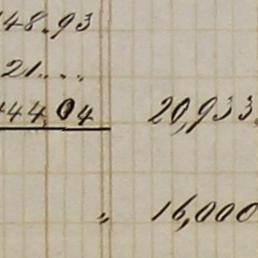 148.93
21....
444.04 20,933.
„ 16,000